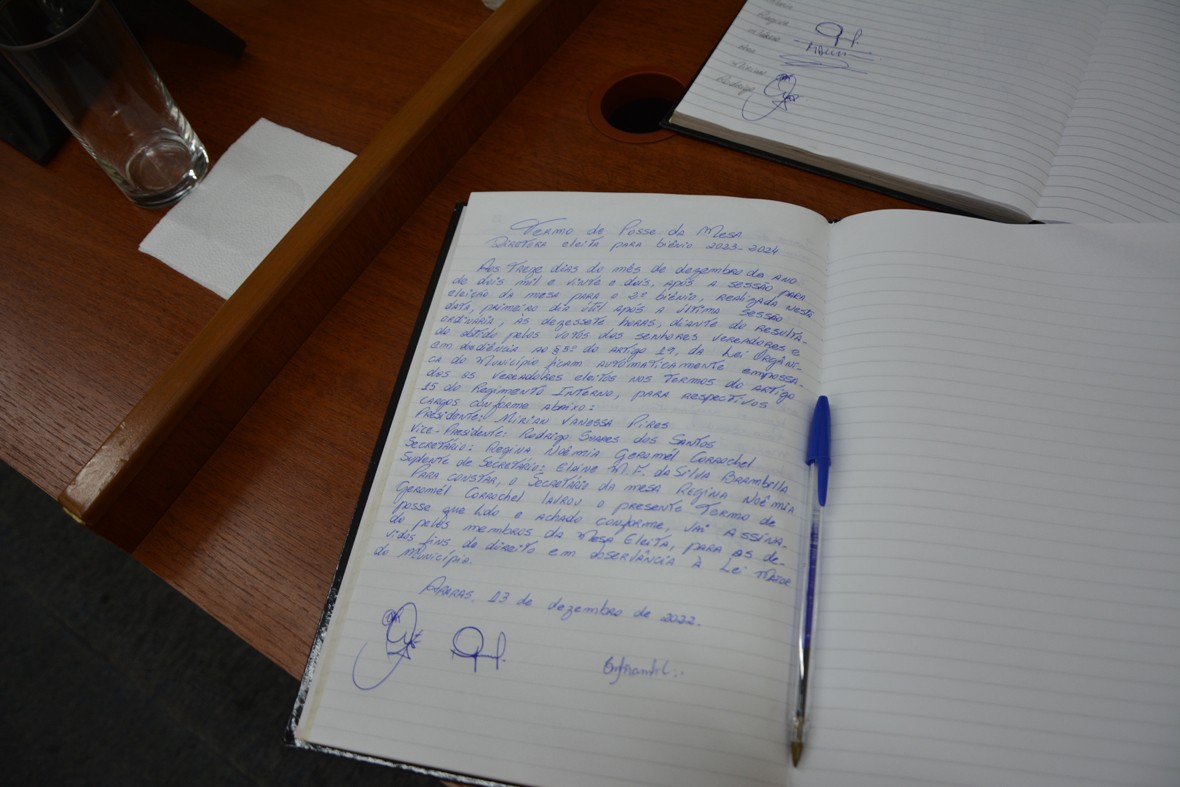 Regina
Rodrigo
Termo de Posse da Mesa
Diretora eleita para biênio 2023-2024
Aos treze dias do mês de dezembro do ano
de dois mil e vinte e dois, após a sessão para
eleição da mesa para o 2º biênio, realizada nesta
data, primeiro dia útil após a última sessão
ordinária, às dezessete horas, diante do resulta-
do obtido pelos votos dos senhores vereadores e
em obediência ao §3º do artigo 19, da Lei Orgâni-
ca do Município ficam automaticamente empossa-
dos os vereadores eleitos nos termos do artigo
15 do Regimento Interno, para respectivos
cargos conforme abaixo:
Presidente: Mirian Vanessa Pires
Vice-Presidente: Rodrigo Soares dos Santos
Secretário: Regina Noêmia Geromél Corrochel
Suplente de Secretário: Elaine M. F. da Silva Brambilla
Para constar, o Secretário da mesa Regina Noêmia
Geromél Corrochel lavrou o presente Termo de
posse que lido e achado conforme, vai assina-
do pelos membros da Mesa Eleita, para as de-
vidos fins de direito em observância à Lei Maior
do Município.
Araras, 13 de dezembro de 2022.